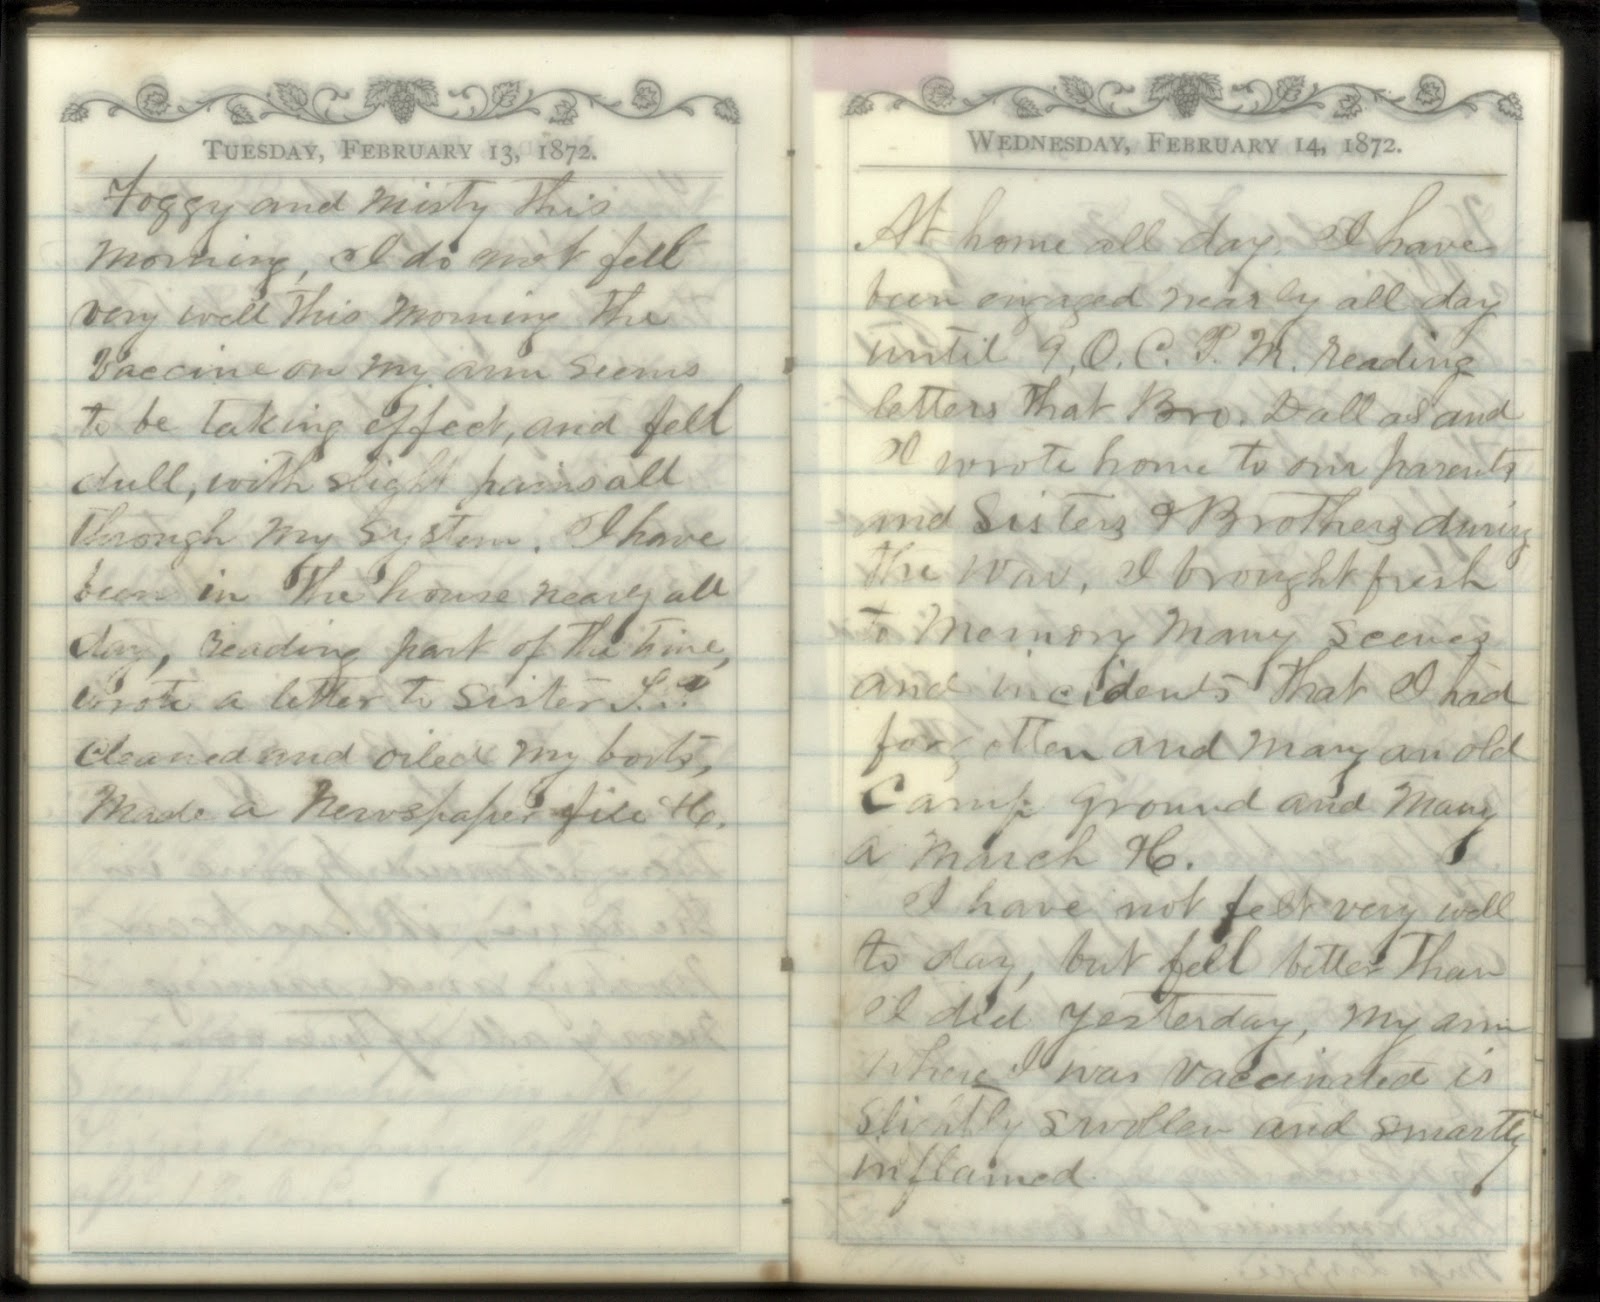 TUESDAY, FEBRUARY 13, 1872.
Foggy and misty this
morning, I do not fell
very well this morning the
vaccine on my arm seems
to be taking effect, and fell
dull, with slight pains all
through my system. I have
been in the house nearly all
day, reading part of the time,
wrote a letter to Sister L.P.
cleaned and oiled my boots,
Made a Newspaper file &c.
WEDNESDAY, FEBRUARY 14, 1872.
At home all day. I have
been engaged nearly all day
until 9, O. C. P. M. reading
letters that Bro. Dallas and
I wrote home to our parents
and Sisters & Brothers during
the War, I brought fresh
to Memory Many scenes
and incidents that I had
forgotten and many an old
Camp ground and Many
a March &c.
I have not felt very well
to day, but fell better than
I did yesterday, My arm
where I was vaccinated is
slightly swollen and smartly
inflamed